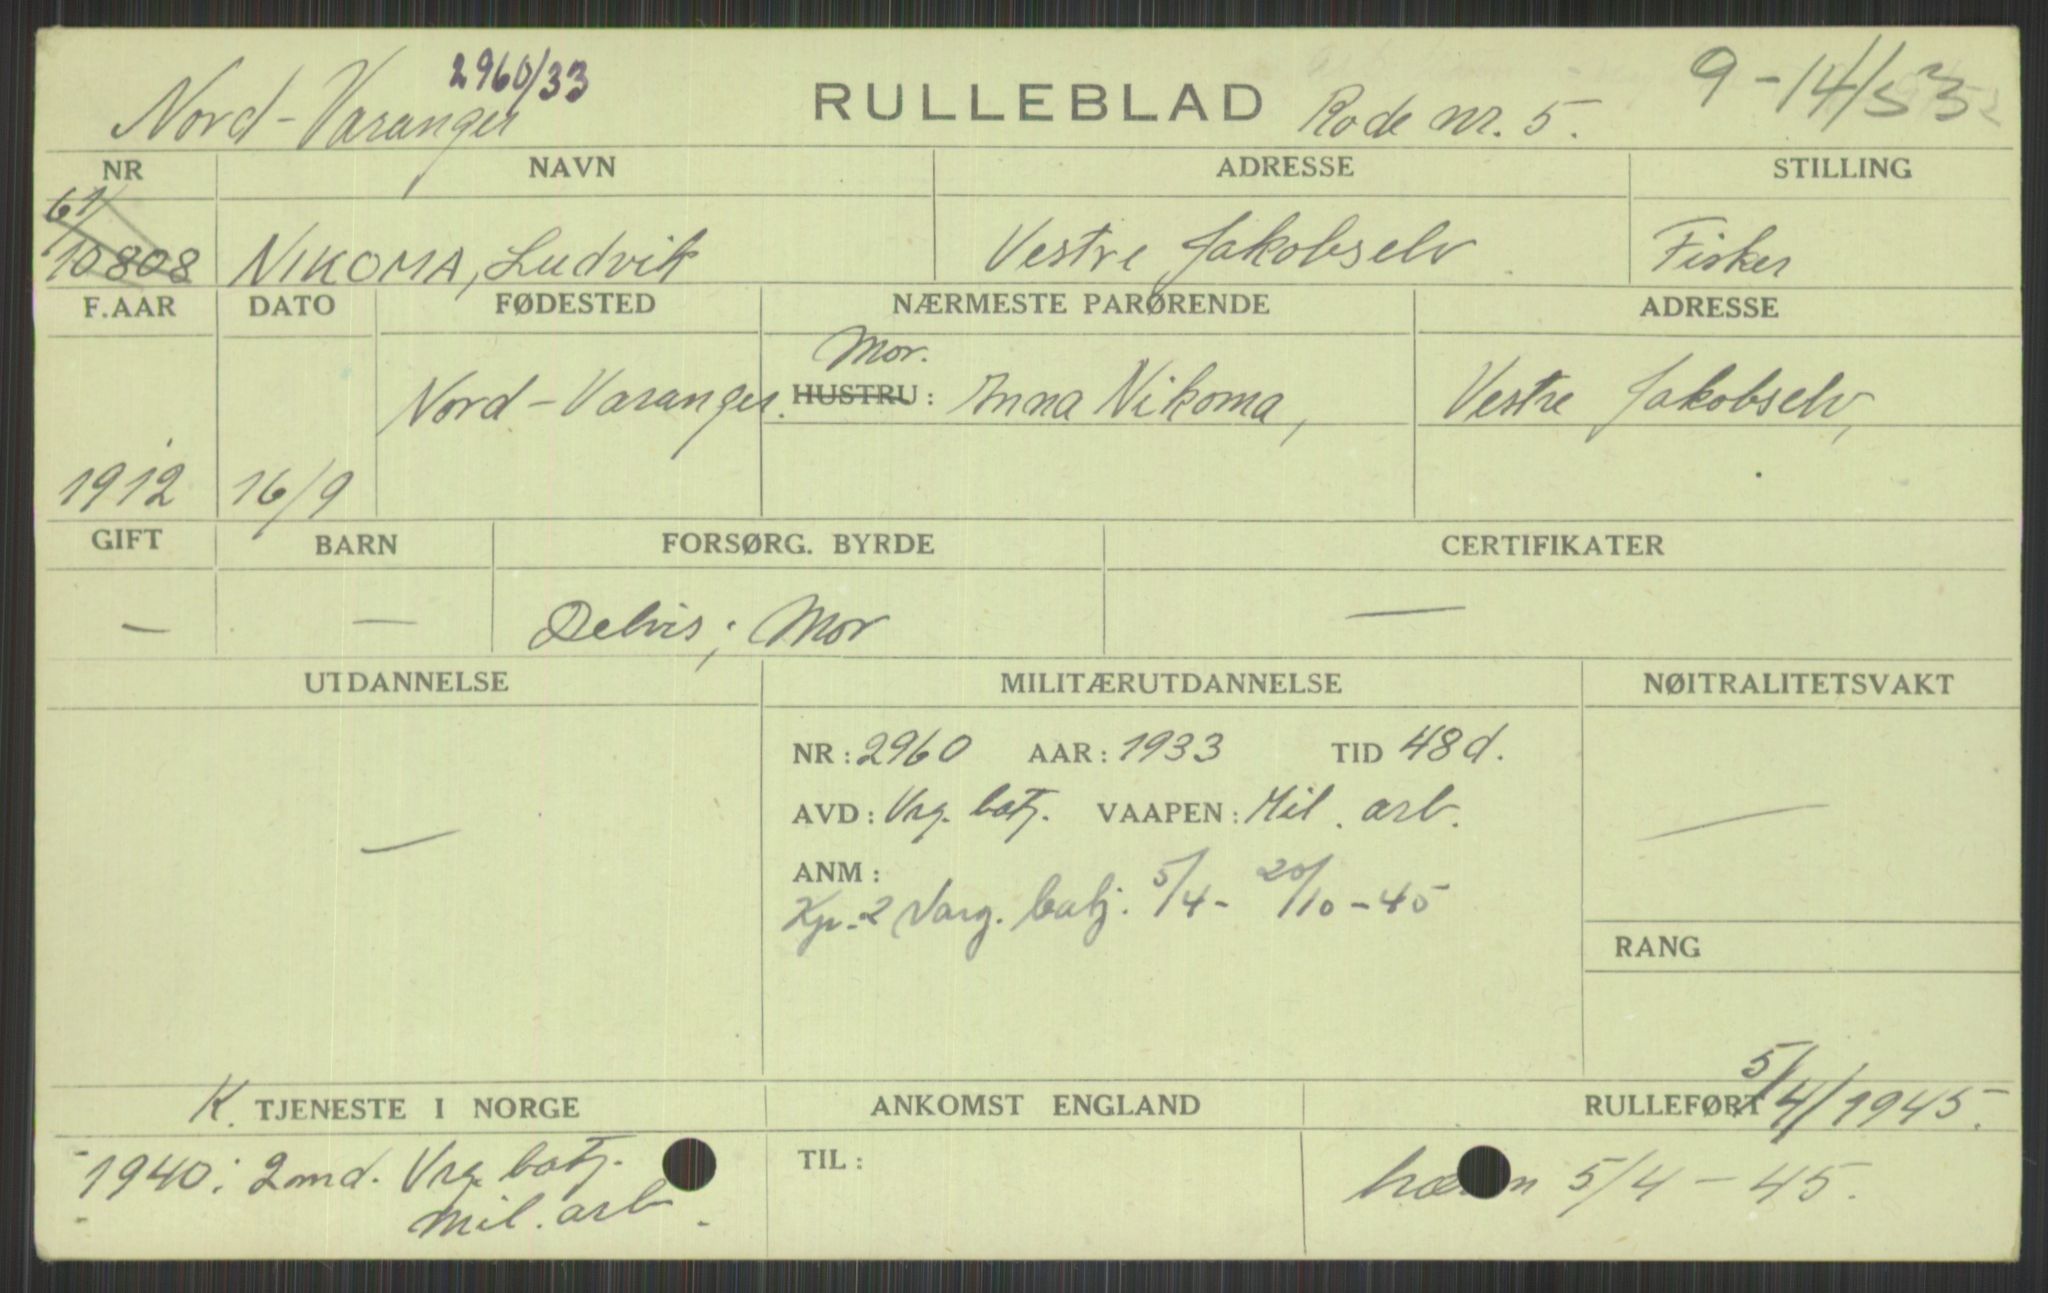 2960/33
Nord-Varanger RULLEBLAD Rode nr. 5. 9-14/53
NR NAVN ADRESSE STILLING
61/
10808 NIKOMA, Ludvik Vestre Jakobselv Fisker
F.AAR DATO FØDESTED NÆRMESTE PARØRENDE ADRESSE
Mor.
Nord-Varanger. HUSTRU: Anna Nikoma, Vestre Jakobselv,
1912 16/9
GIFT BARN FORSØRG. BYRDE CERTIFIKATER
— — Delvis; Mor —
UTDANNELSE MILITÆRUTDANNELSE NØITRALITETSVAKT
NR: 2960 AAR: 1933 TID 48 d.
— AVD: Vrg. batj. VAAPEN: Mil. arb. —
ANM:
Kp. 2 Varg. batj. 5/4- 20/10-45
RANG
K. TJENESTE I NORGE ANKOMST ENGLAND RULLEFØRT 5/4/1945.
1940: 2 md. Vrg. batj. TIL: hæren 5/4-45.
mil. arb.